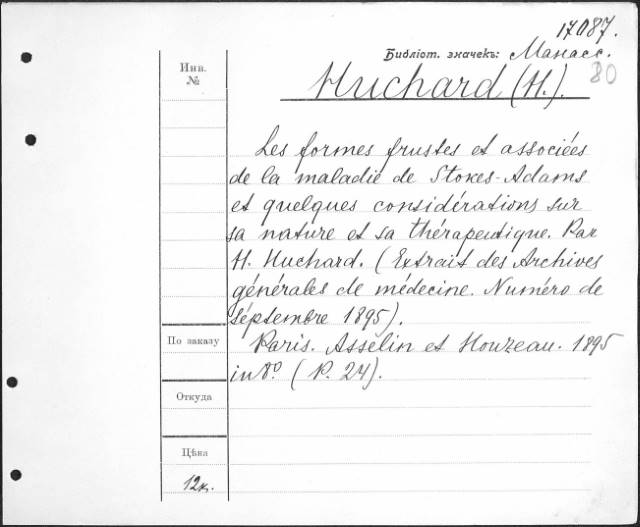 17087.
Библіот. значекъ: Манасс.
80
Инв.
№
Huchard (H.).
Les formes frustes et associées
de la maladie de Stokes-Adams
et quelques considérations sur
sa nature et sa thérapeutique. Par
H. Huchard. (Extrait des Archives
générales de médecine. Numéro de
séptembre 1895).
По заказу
Paris. Asselin et Houzeau. 1895
in 8º. (P. 24).
Откуда
Цѣна
12к.